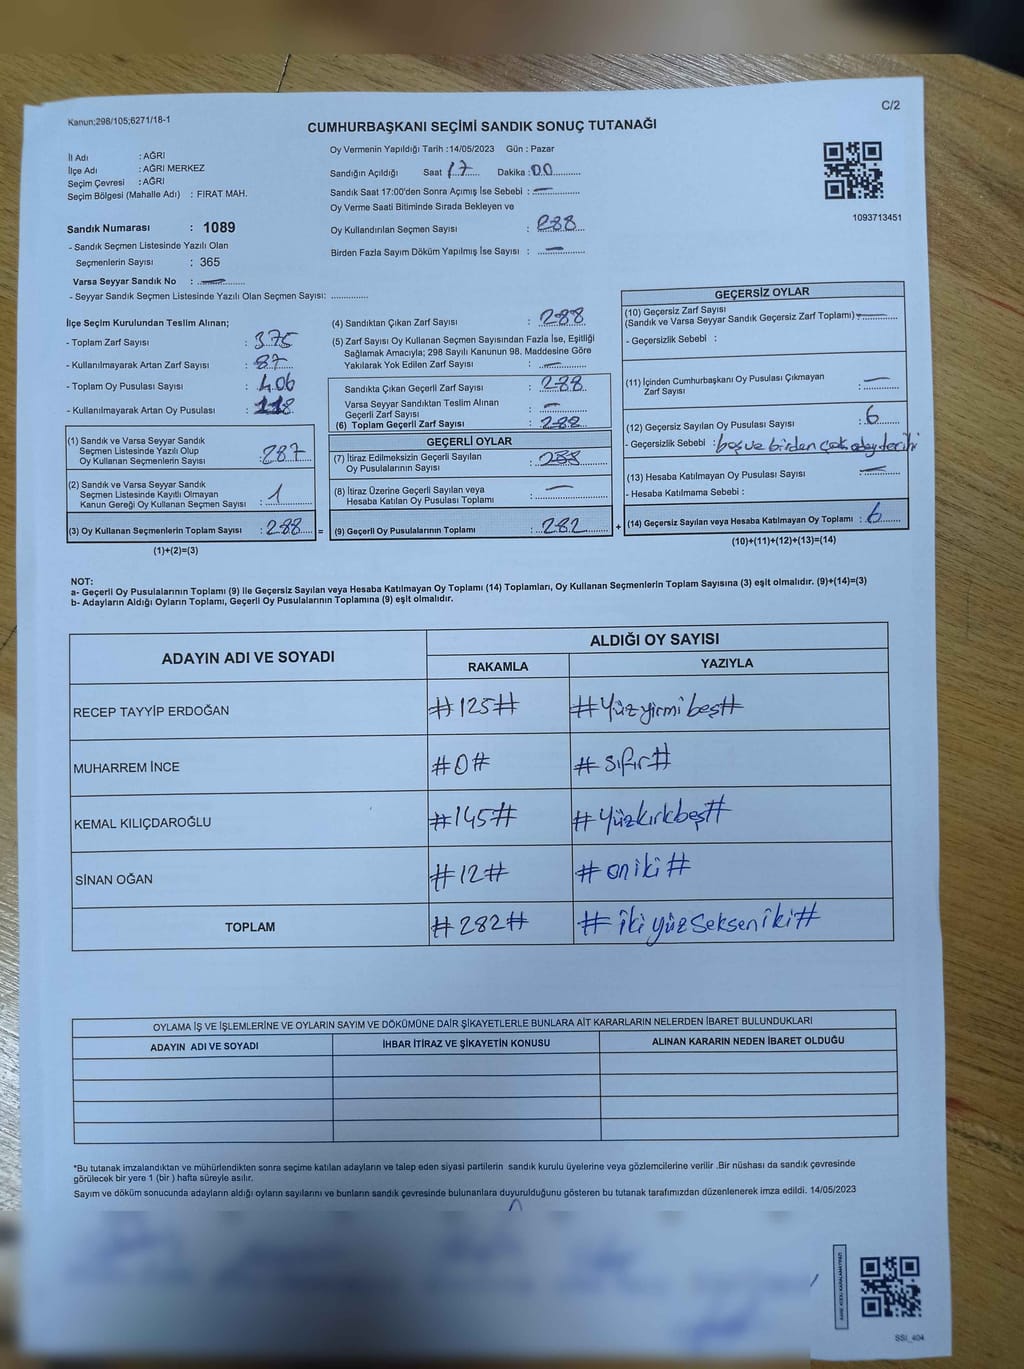 Kanun;298/105;6271/18-1
C/2
CUMHURBAŞKANI SEÇİMİ SANDIK SONUÇ TUTANAĞI
İl Adı : AĞRI
İlçe Adı : AĞRI MERKEZ
Seçim Çevresi : AĞRI
Seçim Bölgesi (Mahalle Adı) : FIRAT MAH.
Oy Vermenin Yapıldığı Tarih :14/05/2023 Gün : Pazar
Sandığın Açıldığı Saat 17 Dakika : 00
Sandık Saat 17:00'den Sonra Açımış İse Sebebi : —
Oy Verme Saati Bitiminde Sırada Bekleyen ve
Oy Kullandırılan Seçmen Sayısı : 288
Birden Fazla Sayım Döküm Yapılmış İse Sayısı : —
1093713451
Sandık Numarası : 1089
- Sandık Seçmen Listesinde Yazılı Olan
Seçmenlerin Sayısı : 365
Varsa Seyyar Sandık No : —
- Seyyar Sandık Seçmen Listesinde Yazılı Olan Seçmen Sayısı: ..............
İlçe Seçim Kurulundan Teslim Alınan;
- Toplam Zarf Sayısı : 375
- Kullanılmayarak Artan Zarf Sayısı : 87
- Toplam Oy Pusulası Sayısı : 406
- Kullanılmayarak Artan Oy Pusulası : 118
(1) Sandık ve Varsa Seyyar Sandık
Seçmen Listesinde Yazılı Olup
Oy Kullanan Seçmenlerin Sayısı : 287
(2) Sandık ve Varsa Seyyar Sandık
Seçmen Listesinde Kayıtlı Olmayan
Kanun Gereği Oy Kullanan Seçmen Sayısı : 1
(3) Oy Kullanan Seçmenlerin Toplam Sayısı : 288 =
(1)+(2)=(3)
(4) Sandıktan Çıkan Zarf Sayısı : 288
(5) Zarf Sayısı Oy Kullanan Seçmen Sayısından Fazla İse, Eşitliği
Sağlamak Amacıyla; 298 Sayılı Kanunun 98. Maddesine Göre
Yakılarak Yok Edilen Zarf Sayısı : —
Sandıkta Çıkan Geçerli Zarf Sayısı : 288
Varsa Seyyar Sandıktan Teslim Alınan
Geçerli Zarf Sayısı : —
(6) Toplam Geçerli Zarf Sayısı : 288
GEÇERLİ OYLAR
(7) İtiraz Edilmeksizin Geçerli Sayılan
Oy Pusulalarının Sayısı :
(8) İtiraz Üzerine Geçerli Sayılan veya
Hesaba Katılan Oy Pusulası Toplamı : —
(9) Geçerli Oy Pusulalarının Toplamı : 282 +
GEÇERSİZ OYLAR
(10) Geçersiz Zarf Sayısı
(Sandık ve Varsa Seyyar Sandık Geçersiz Zarf Toplamı) : —
- Geçersizlik Sebebi :
(11) İçinden Cumhurbaşkanı Oy Pusulası Çıkmayan
Zarf Sayısı : —
(12) Geçersiz Sayılan Oy Pusulası Sayısı : 6
- Geçersizlik Sebebi : boş ve birden çok aday tercihi
(13) Hesaba Katılmayan Oy Pusulası Sayısı : —
- Hesaba Katılmama Sebebi :
(14) Geçersiz Sayılan veya Hesaba Katılmayan Oy Toplamı : 6
(10)+(11)+(12)+(13)=(14)
NOT:
a- Geçerli Oy Pusulalarının Toplamı (9) ile Geçersiz Sayılan veya Hesaba Katılmayan Oy Toplamı (14) Toplamları, Oy Kullanan Seçmenlerin Toplam Sayısına (3) eşit olmalıdır. (9)+(14)=(3)
b- Adayların Aldığı Oyların Toplamı, Geçerli Oy Pusulalarının Toplamına (9) eşit olmalıdır.
ADAYIN ADI VE SOYADI
ALDIĞI OY SAYISI
RAKAMLA YAZIYLA
RECEP TAYYİP ERDOĞAN #125# #Yüzyirmibeş#
MUHARREM İNCE #0# #sıfır#
KEMAL KILIÇDAROĞLU #145# #Yüzkırkbeş#
SİNAN OĞAN #12# #oniki#
TOPLAM #282# #ikiyüzsekseniki#
OYLAMA İŞ VE İŞLEMLERİNE VE OYLARIN SAYIM VE DÖKÜMÜNE DAİR ŞİKAYETLERLE BUNLARA AİT KARARLARIN NELERDEN İBARET BULUNDUKLARI
ADAYIN ADI VE SOYADI İHBAR İTİRAZ VE ŞİKAYETİN KONUSU ALINAN KARARIN NEDEN İBARET OLDUĞU
*Bu tutanak imzalandıktan ve mühürlendikten sonra seçime katılan adayların ve talep eden siyasi partilerin sandık kurulu üyelerine veya gözlemcilerine verilir .Bir nüshası da sandık çevresinde
görülecek bir yere 1 (bir ) hafta süreyle asılır.
Sayım ve döküm sonucunda adayların aldığı oyların sayılarını ve bunların sandık çevresinde bulunanlara duyurulduğunu gösteren bu tutanak tarafımızdan düzenlenerek imza edildi. 14/05/2023
SSI_404